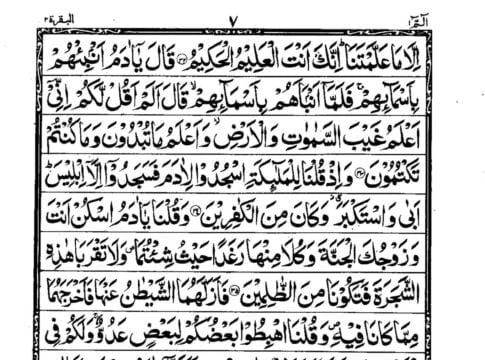 الٓمّٓ ١ ٧ البقرة ٢
اِلَّا مَا عَلَّمْتَنَا ؕ اِنَّكَ اَنْتَ الْعَلِيْمُ الْحَكِيْمُ ﴿۳۲﴾ قَالَ يٰۤاٰدَمُ اَنْۢبِئْهُمْ
بِاَسْمَآئِهِمْ ۚ فَلَمَّاۤ اَنْۢبَاَهُمْ بِاَسْمَآئِهِمْ ۙ قَالَ اَلَمْ اَقُلْ لَّكُمْ اِنِّيْۤ
اَعْلَمُ غَيْبَ السَّمٰوٰتِ وَ الْاَرْضِ ۙ وَ اَعْلَمُ مَا تُبْدُوْنَ وَ مَا كُنْتُمْ
تَكْتُمُوْنَ ﴿۳۳﴾ وَ اِذْ قُلْنَا لِلْمَلٰٓئِكَةِ اسْجُدُوْا لِاٰدَمَ فَسَجَدُوْۤا اِلَّاۤ اِبْلِيْسَ ؕ
اَبٰى وَ اسْتَكْبَرَ ۗ٭ وَ كَانَ مِنَ الْكٰفِرِيْنَ ﴿۳۴﴾ وَ قُلْنَا يٰۤاٰدَمُ اسْكُنْ اَنْتَ
وَ زَوْجُكَ الْجَنَّةَ وَ كُلَا مِنْهَا رَغَدًا حَيْثُ شِئْتُمَا ۪ وَ لَا تَقْرَبَا هٰذِهِ
الشَّجَرَةَ فَتَكُوْنَا مِنَ الظّٰلِمِيْنَ ﴿۳۵﴾ فَاَزَلَّهُمَا الشَّيْطٰنُ عَنْهَا فَاَخْرَجَهُمَا
مِمَّا كَانَا فِيْهِ ۪ وَ قُلْنَا اهْبِطُوْا بَعْضُكُمْ لِبَعْضٍ عَدُوٌّ ۚ وَ لَكُمْ فِي